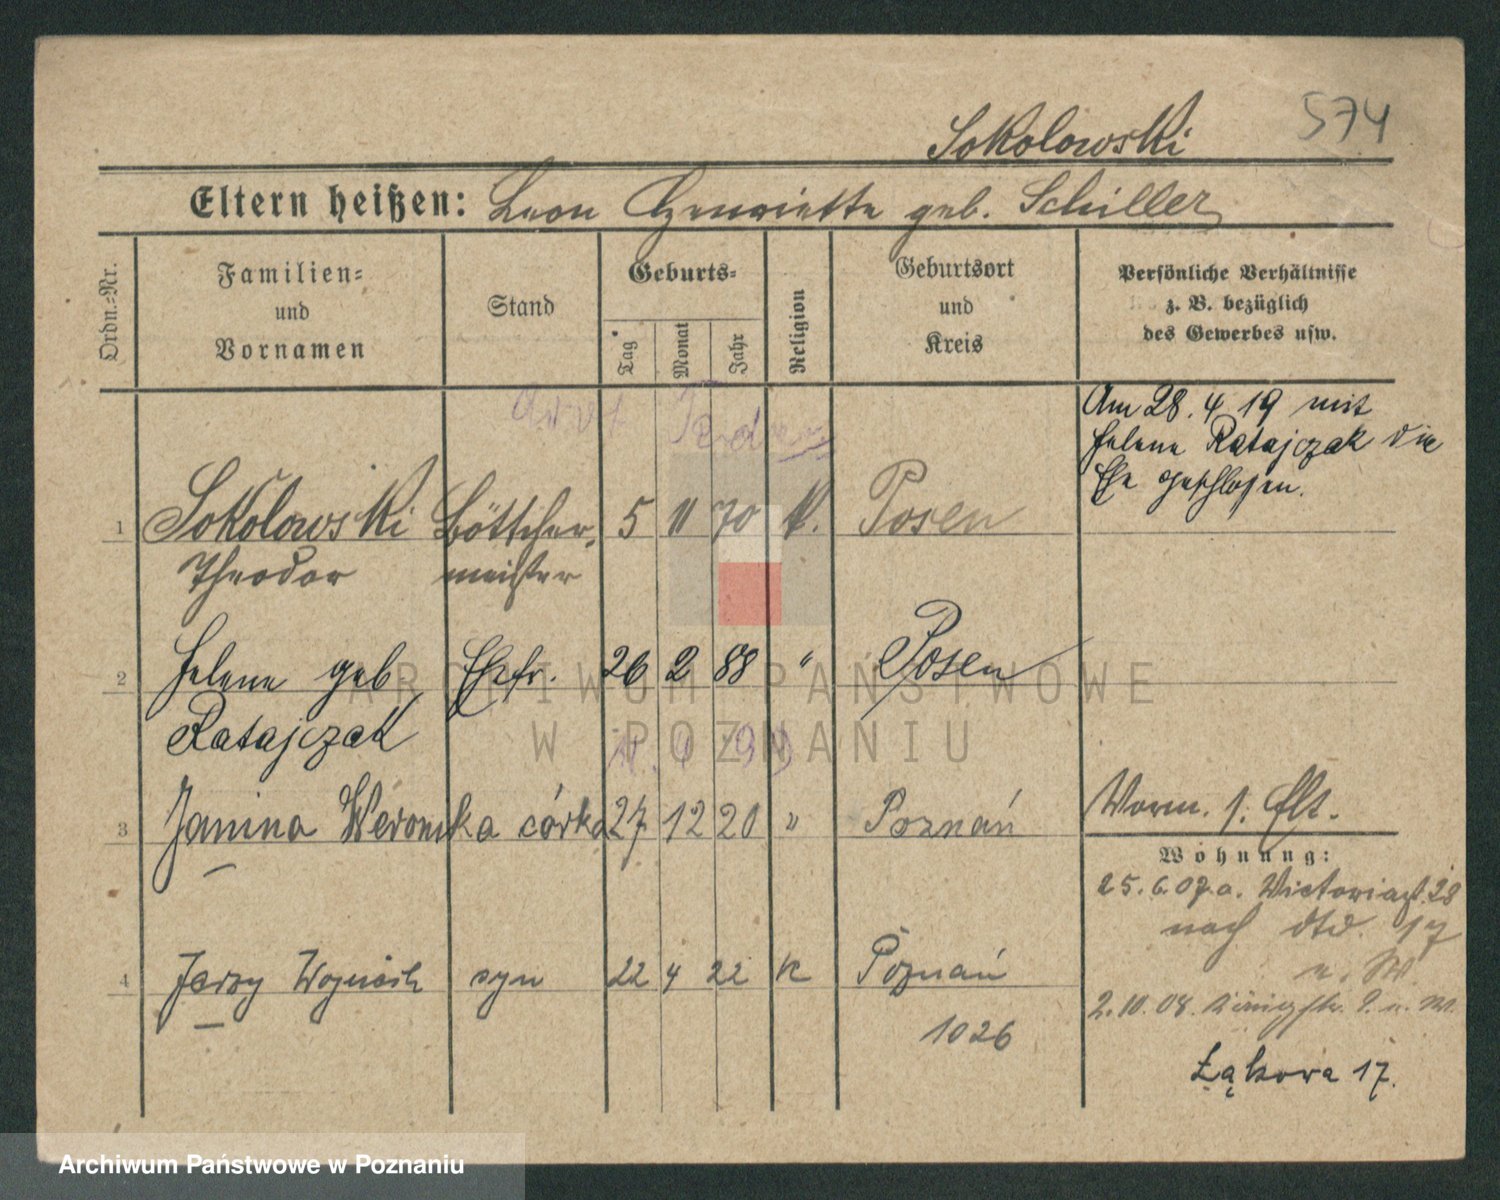 574
Sokolowski
Eltern heißen: Leon Henriette geb. Schiller
Ordn.=Nr.
Familien=
und
Vornamen
Stand
Geburts=
Tag
Monat
Jahr
Religion
Geburtsort
und
Kreis
Persönliche Verhältnisse
z. B. bezüglich
des Gewerbes usw.
Am 28. 4 19 mit
Helene Ratajczak die
Ehe geschlossen.
1 Sokolowski Böttcher= 5 11 70 K. Posen
Theodor meister
2 Helene geb Ehefr. 26 2 88 " Posen
Ratajczak
3 Janina Weronika córka 27 12 20 " Poznań
Worm. 1. Flt.
Wohnung:
25.6.07. a. Victoriast. 28
nach dtd. 17
u. W.
4 Jerzy Wojciech syn 22 4 22 K Poznań
2.10.08. u. W.
1026
Łąkowa 17.
ARCHIWUM PAŃSTWOWE
W POZNANIU
Archiwum Państwowe w Poznaniu